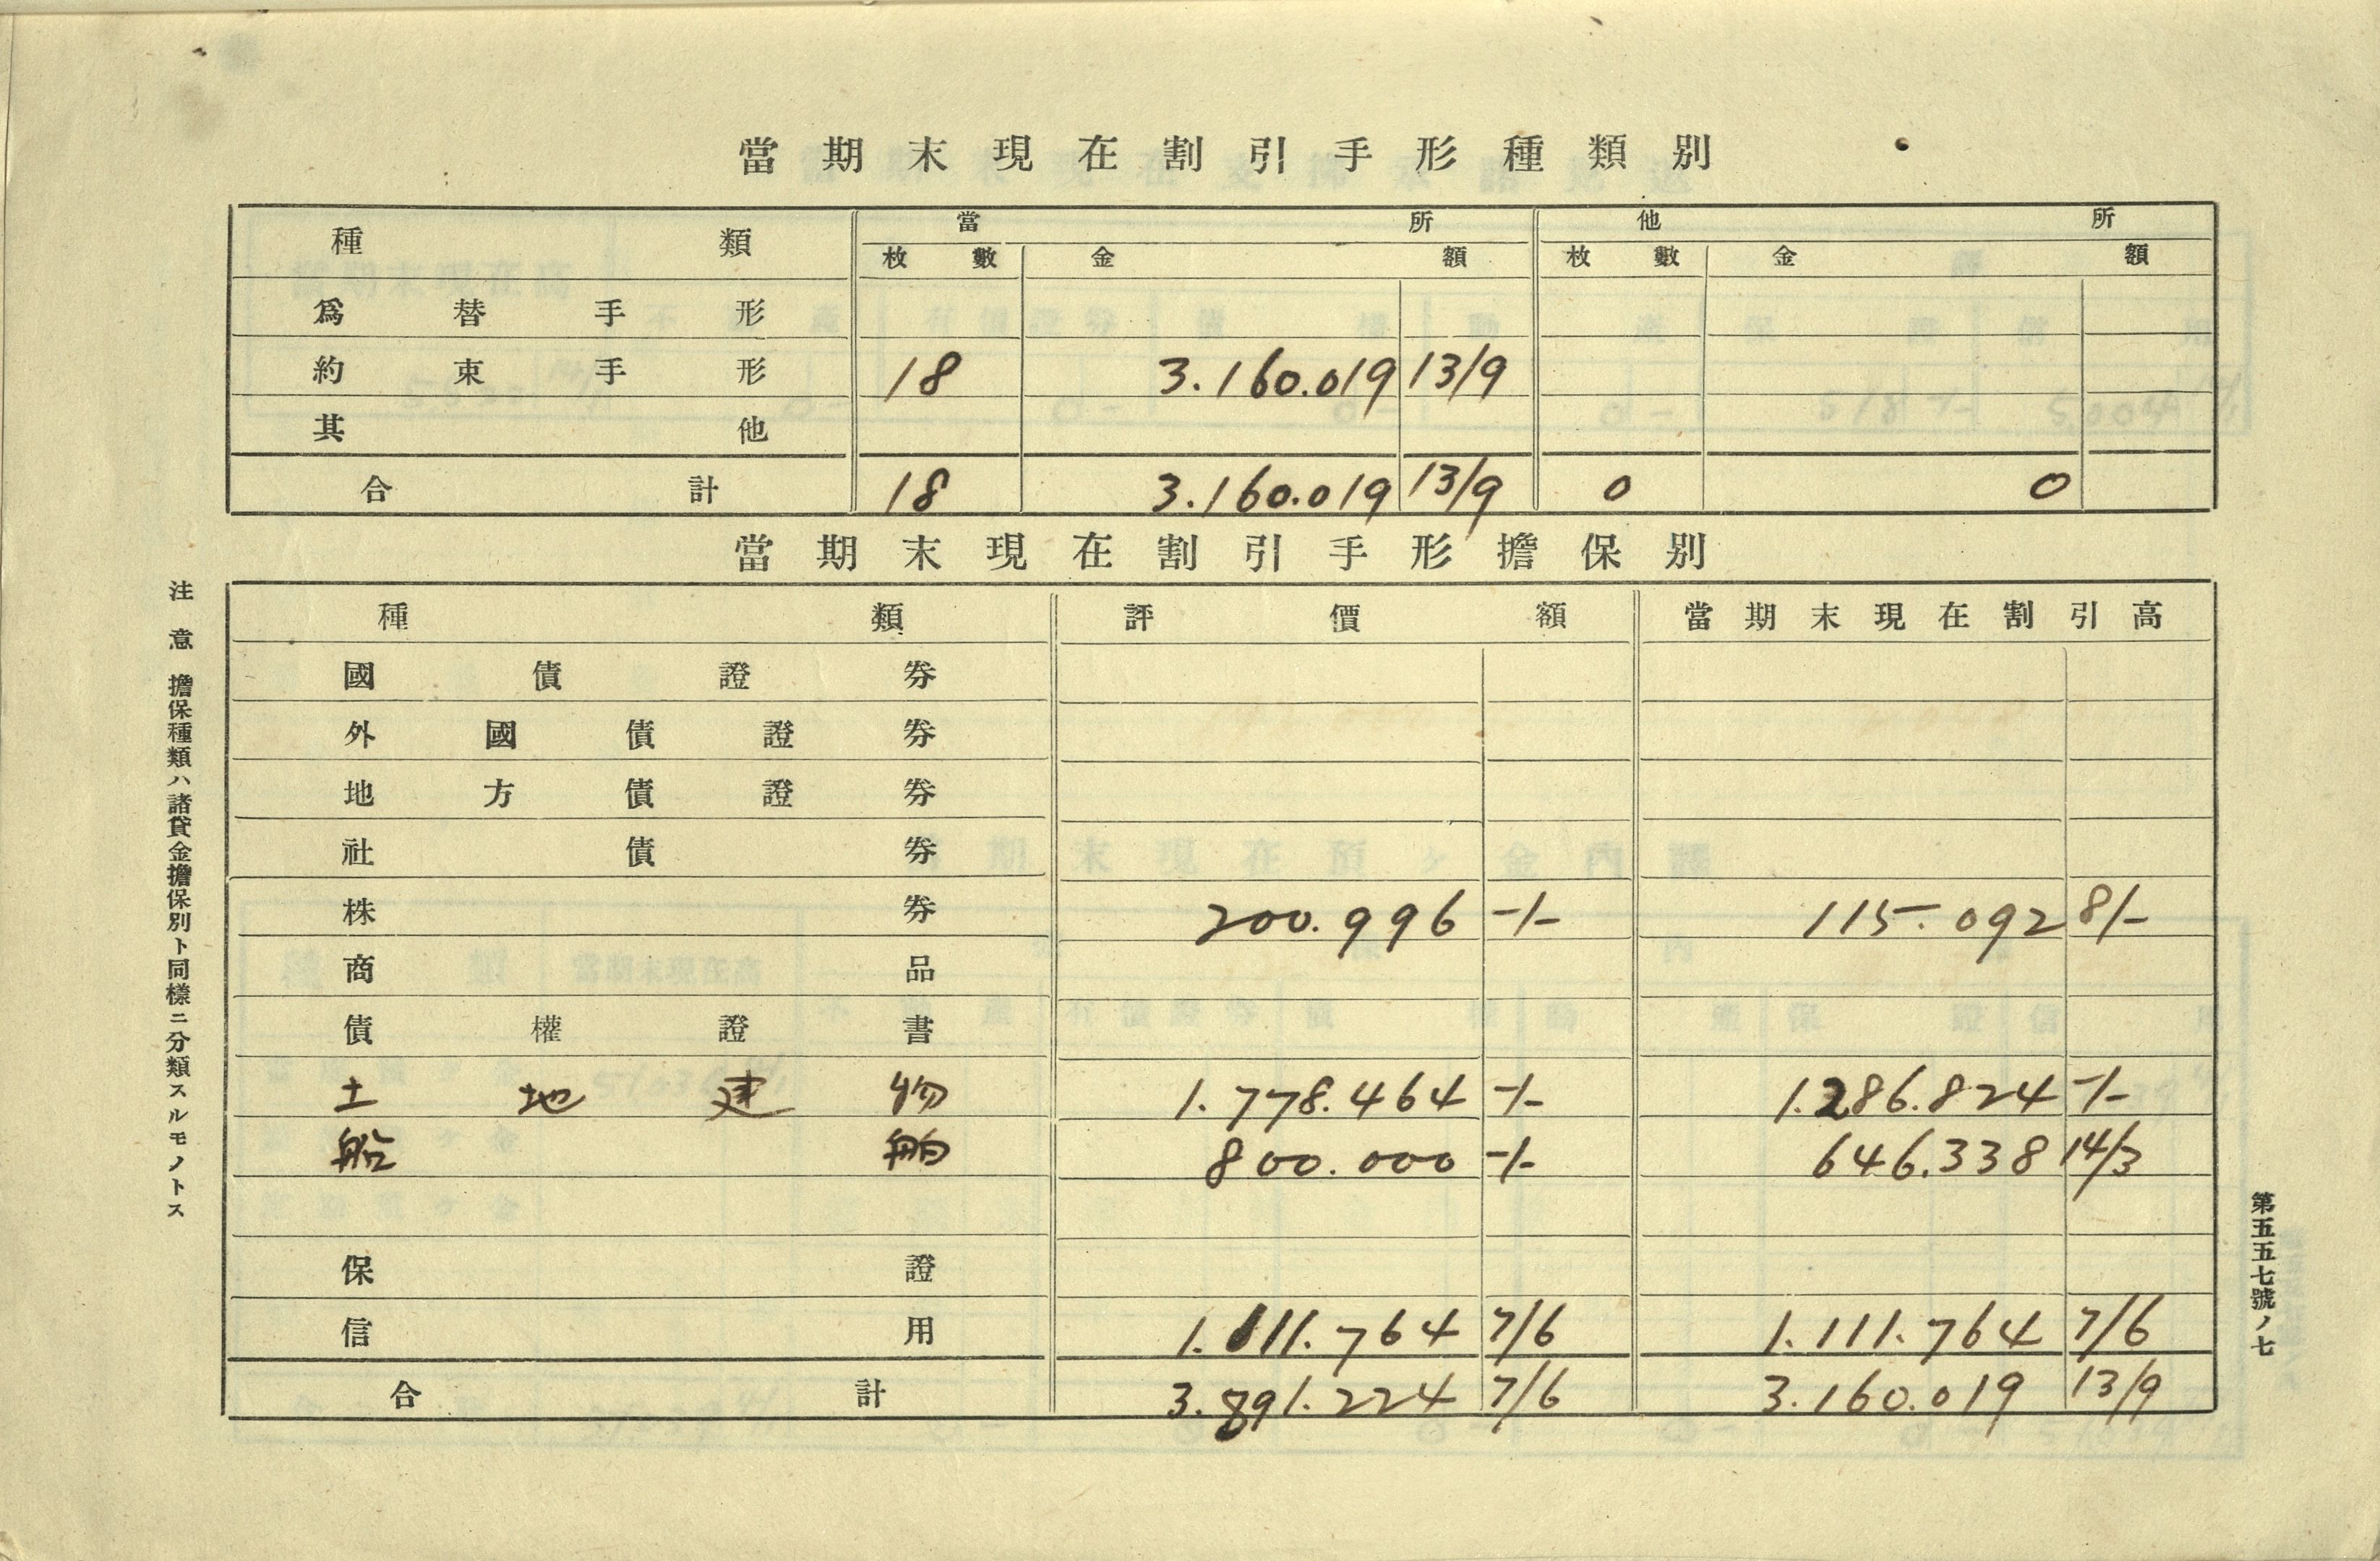 當期末現在割引手形種類別
種類 當所 他所
枚數 金額 枚數 金額
爲替手形
約束手形 18 3.160.019 13/9
其他
合計 18 3.160.019 13/9 0 0
當期末現在割引手形擔保別
種類 評價額 當期末現在割引高
國債證券
外國債證券
地方債證券
社債券
株券 200.996 -/- 115.092 8/-
商品
債權證書
土地建物 1.778.464 -/- 1.286.824 -/-
船舶 800.000 -/- 646.338 14/3
保證
信用 1.111.764 7/6 1.111.764 7/6
合計 3.891.224 7/6 3.160.019 13/9
注意 擔保種類ハ諸貸金擔保別ト同樣ニ分類スルモノトス
第五五七號ノ七